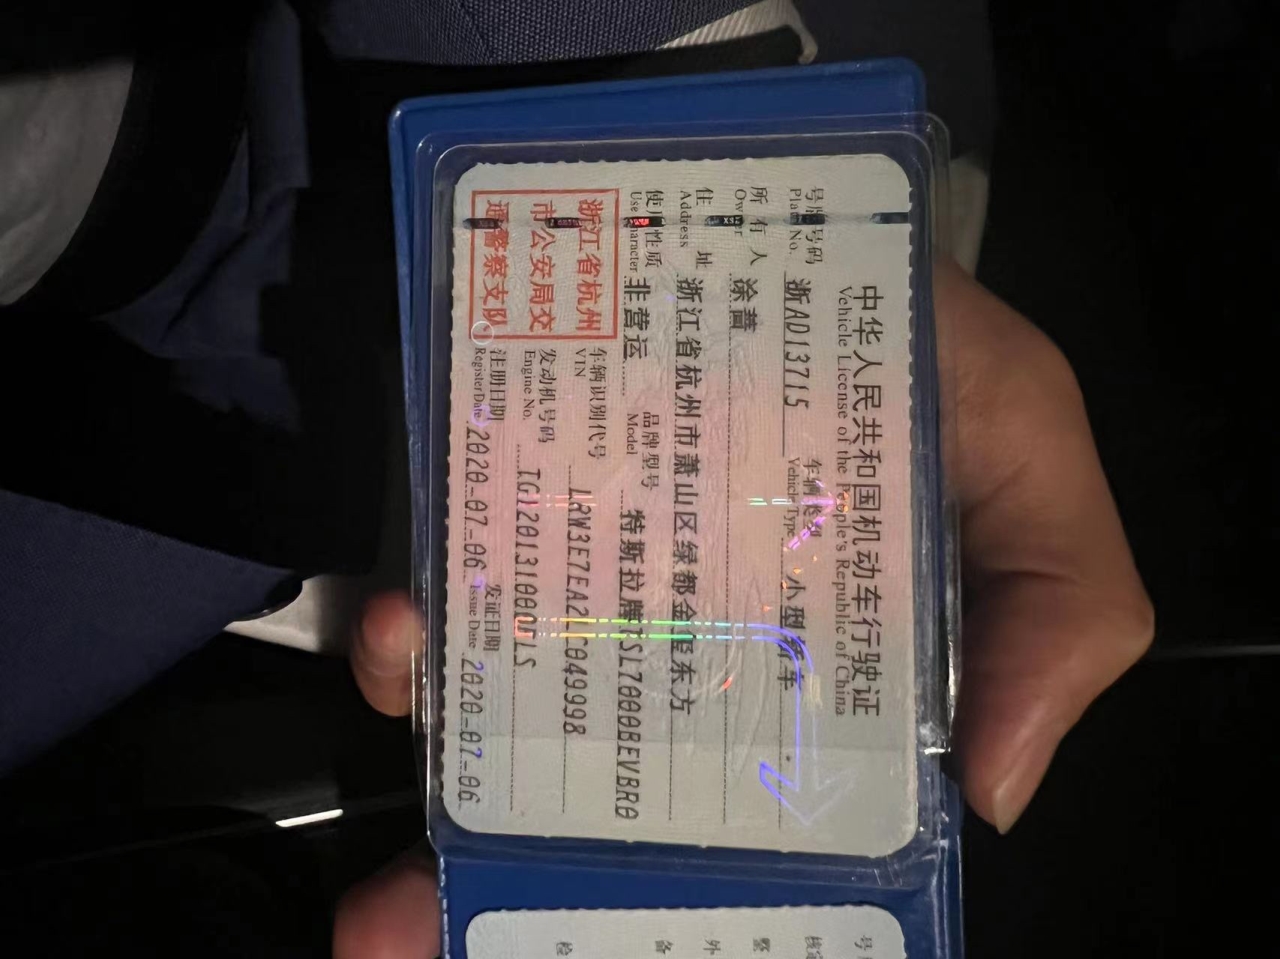 中华人民共和国机动车行驶证
Vehicle License of the People's Republic of China
号牌号码 浙AD13715 车辆类型 小型轿车
Plate No. Vehicle Type
所有人
Owner
住址 浙江省杭州市萧山区绿都金
Address 东方
使用性质 非营运 品牌型号 特斯拉牌TSL7000BEVBR0
Use Character Model
浙江省杭州
市公安局交
通警察支队
车辆识别代号
VIN
发动机号码
Engine No.
注册日期 2020-07-06 发证日期 2020-07-06
Register Date Issue Date
号
核定
整
外
备
检